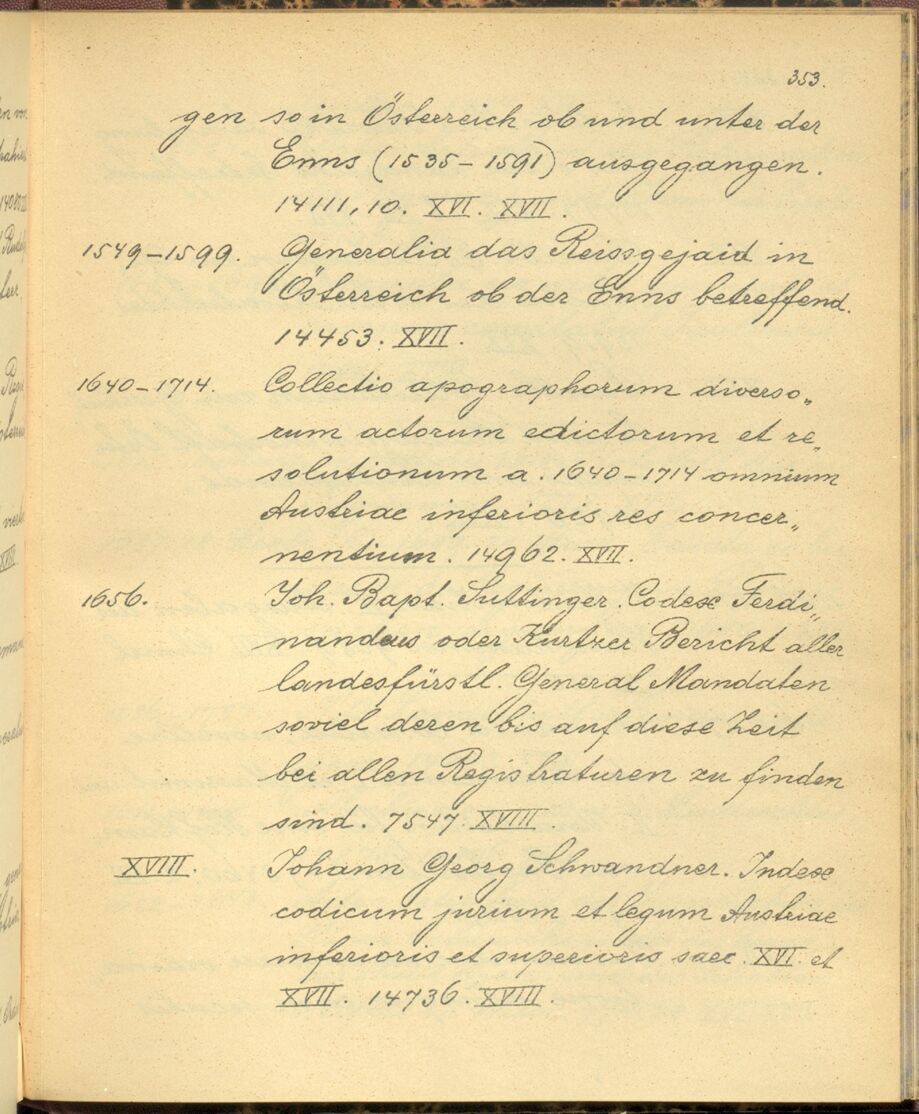 353.
gen so in Österreich ob und unter der
Enns (1535-1591) ausgegangen.
14111, 10. XVI. XVII.
1549-1599. Generalia das Reissgejaid in
Österreich ob der Enns betreffend.
14453. XVII.
1640-1714. Collectio apographorum diverso„
rum actorum edictorum et re„
solutionum a. 1640-1714 omnium
Austriae inferioris res concer„
nentium. 14962. XVII.
1656. Joh. Bapt. Suttinger. Codex Ferdi„
nandeus oder Kurtzer Bericht aller
landesfürstl. General Mandaten
soviel deren bis auf diese Zeit
bei allen Registraturen zu finden
sind. 7547. XVIII.
XVIII. Johann Georg Schwandner. Index
codicum jurium et legum Austriae
inferioris et superioris saec. XVI. et
XVII. 14736. XVIII.